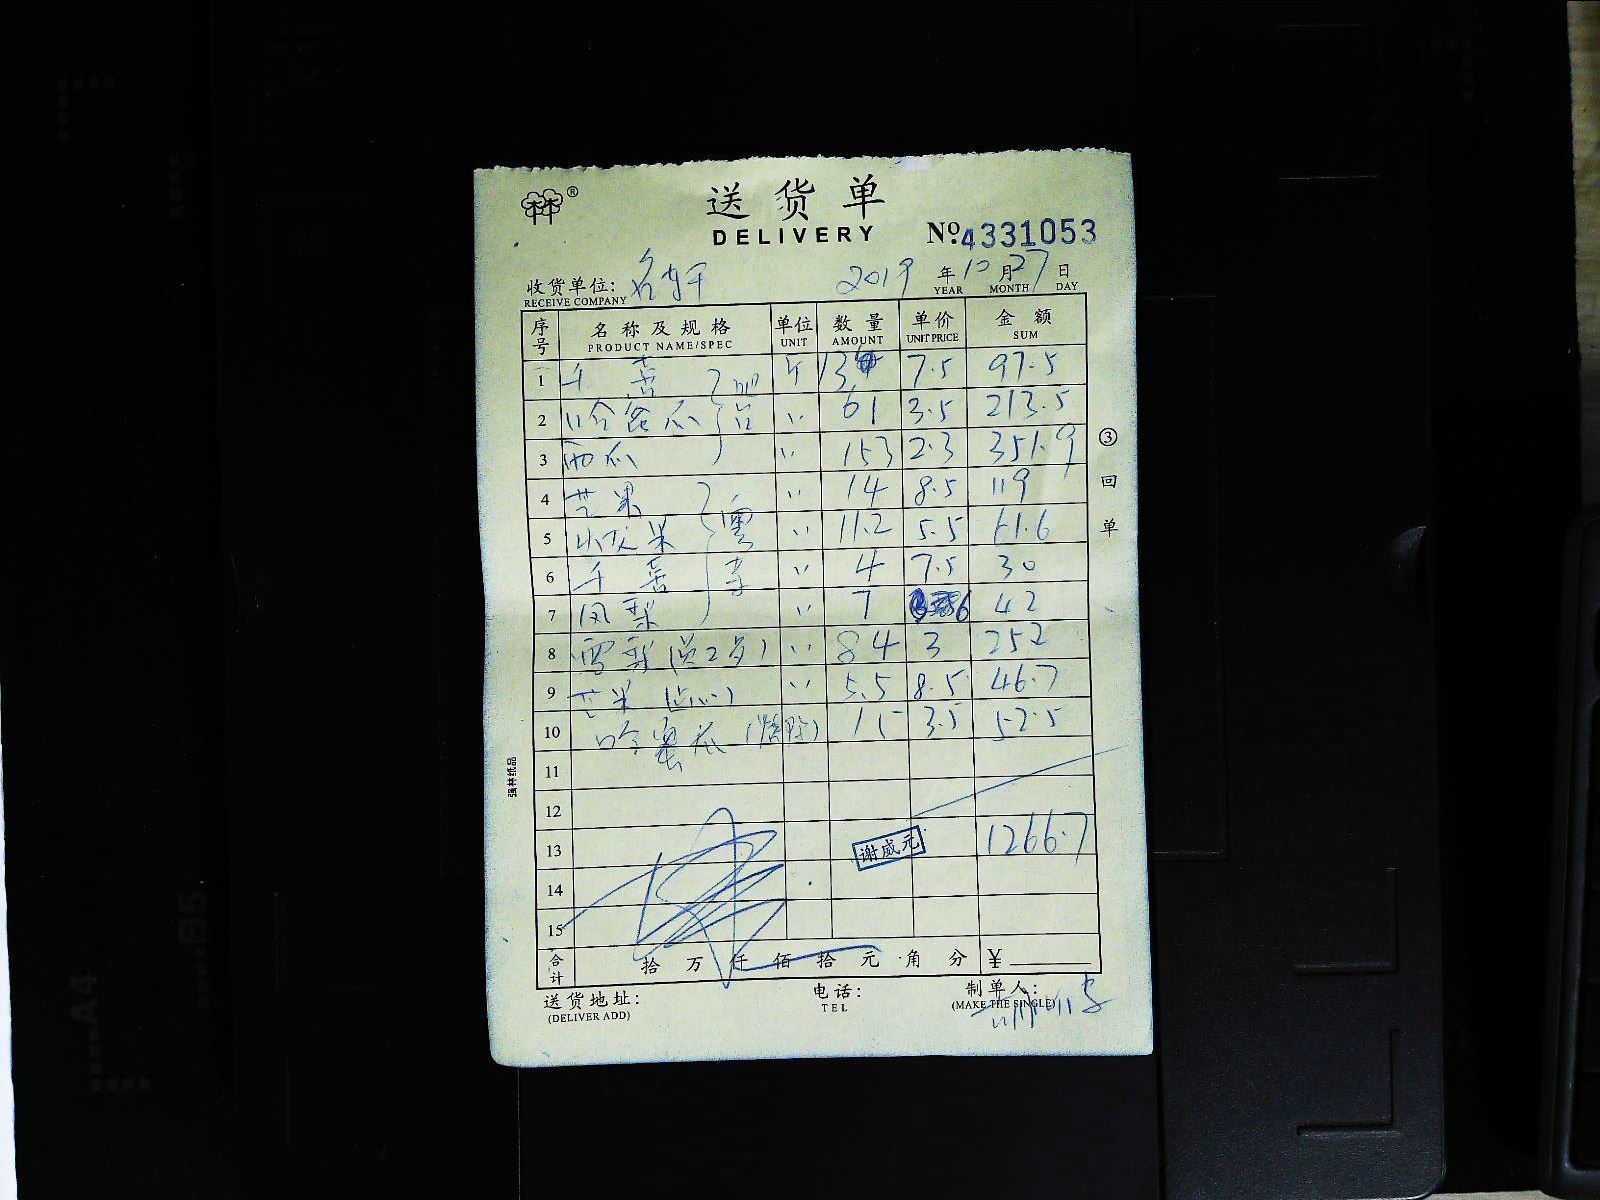 林林 ®
送货单
DELIVERY
Nº.4331053
收货单位: 名轩 2019 年 10 月 27 日
RECEIVE COMPANY YEAR MONTH DAY
序号 名称及规格 单位 数量 单价 金额
PRODUCT NAME/SPEC UNIT AMOUNT UNIT PRICE SUM
1 千喜 斤 13 7.5 97.5
2 哈密瓜 〃 61 3.5 213.5
3 西瓜 〃 153 2.3 351.9
4 芒果 〃 14 8.5 119
5 火龙果 〃 11.2 5.5 61.6
6 千喜 〃 4 7.5 30
7 凤梨 〃 7 6 42
8 雪梨 〃 84 3 252
9 芒果(点心) 〃 5.5 8.5 46.7
10 哈蜜瓜 15 3.5 52.5
11
12
13 1266.7
谢威元
14
15
合计 拾 万 仟 佰 拾 元 角 分 ¥
送货地址: 电话: 制单人:
(DELIVER ADD) TEL (MAKE THE SINGLE)
③回单
强林纸品
A4
B5